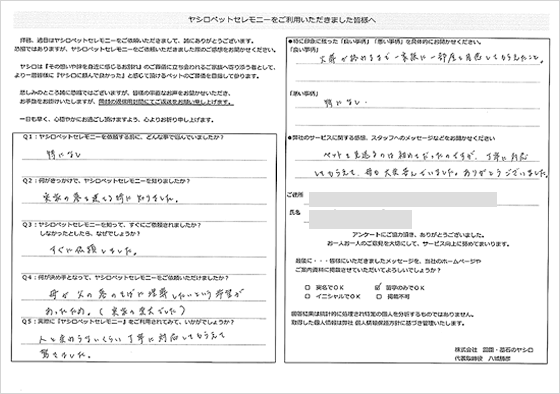 ヤシロペットセレモニーをご利用いただきました皆様へ
拝啓、過日はヤシロペットセレモニーをご依頼いただきまして、誠にありがとうございます。
恐縮ではありますが、ヤシロペットセレモニーをご依頼いただきました際のご感想をお聞かせください。
より一層皆様に『ヤシロに頼んで良かった』と感じて頂けるペットのご葬儀を目指して参ります。
悲しみのところ誠に恐縮ではございますが、皆様の率直なお声をお聞かせいただき、
お手数をお掛けいたしますが、同封の返信用封筒にてご返送をお願い申し上げます。
一日も早く、心穏やかにお過ごし頂けますよう、心よりお祈り申し上げます。
Q1：ヤシロペットセレモニーを依頼する前に、どんな事で悩んでいましたか?
特になし
Q2：何がきっかけで、ヤシロペットセレモニーを知りましたか?
実家の墓を建てる時に知りました。
Q3：ヤシロペットセレモニーを知って、すぐにご依頼されましたか?
しなかったとしたら、なぜでしょうか?
すぐに依頼しました。
Q4：何が決め手となって、ヤシロペットセレモニーをご依頼いただけましたか?
母が父の墓のそばに埋葬したいという希望が
あったため。(実家の愛犬でした)
Q5：実際に『ヤシロペットセレモニー』をご利用されてみて、いかがでしょうか?
人と変わらないくらい丁寧に対応してもらえて
驚きました。
●特に印象に残った「良い事柄」「悪い事柄」を具体的にお聞かせください。
「良い事柄」
「悪い事柄」
特になし。
●弊社のサービスに関する感想、スタッフへのメッセージなどをお聞かせください
ペットを見送るのは初めてだったのですが、丁寧に対応
してもらえて、母も大変喜んでいました。ありがとうございました。
ご住所
氏名
アンケートにご協力頂き、ありがとうございました。
お一人お一人のご意見を大切にして、サービス向上に努めてまいります。
最後に・・・皆様にいただきましたメッセージを、当社のホームページや
ご案内資料に掲載させていただいてよろしいでしょうか?
□ 実名でOK ☑ 苗字のみでOK
□ イニシャルでOK □ 掲載不可
回答結果は統計的に処理され特定の個人を分析するものではありません。
取得した個人情報は弊社 個人情報保護方針に基づき管理いたします。
株式会社 霊園・墓石のヤシロ
代表取締役 八城勝彦